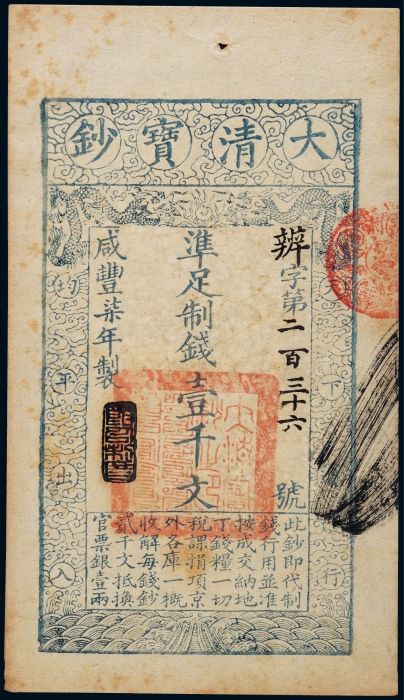 大清寶鈔
下行
辨字第二百三十六號
準足制錢壹千文
咸豐柒年製
均平出入
此鈔即代制
錢行用並准
按成交納地
丁錢糧一切
稅課捐項京
外各庫一概
收解每錢鈔
貳千文抵換
官票銀壹兩